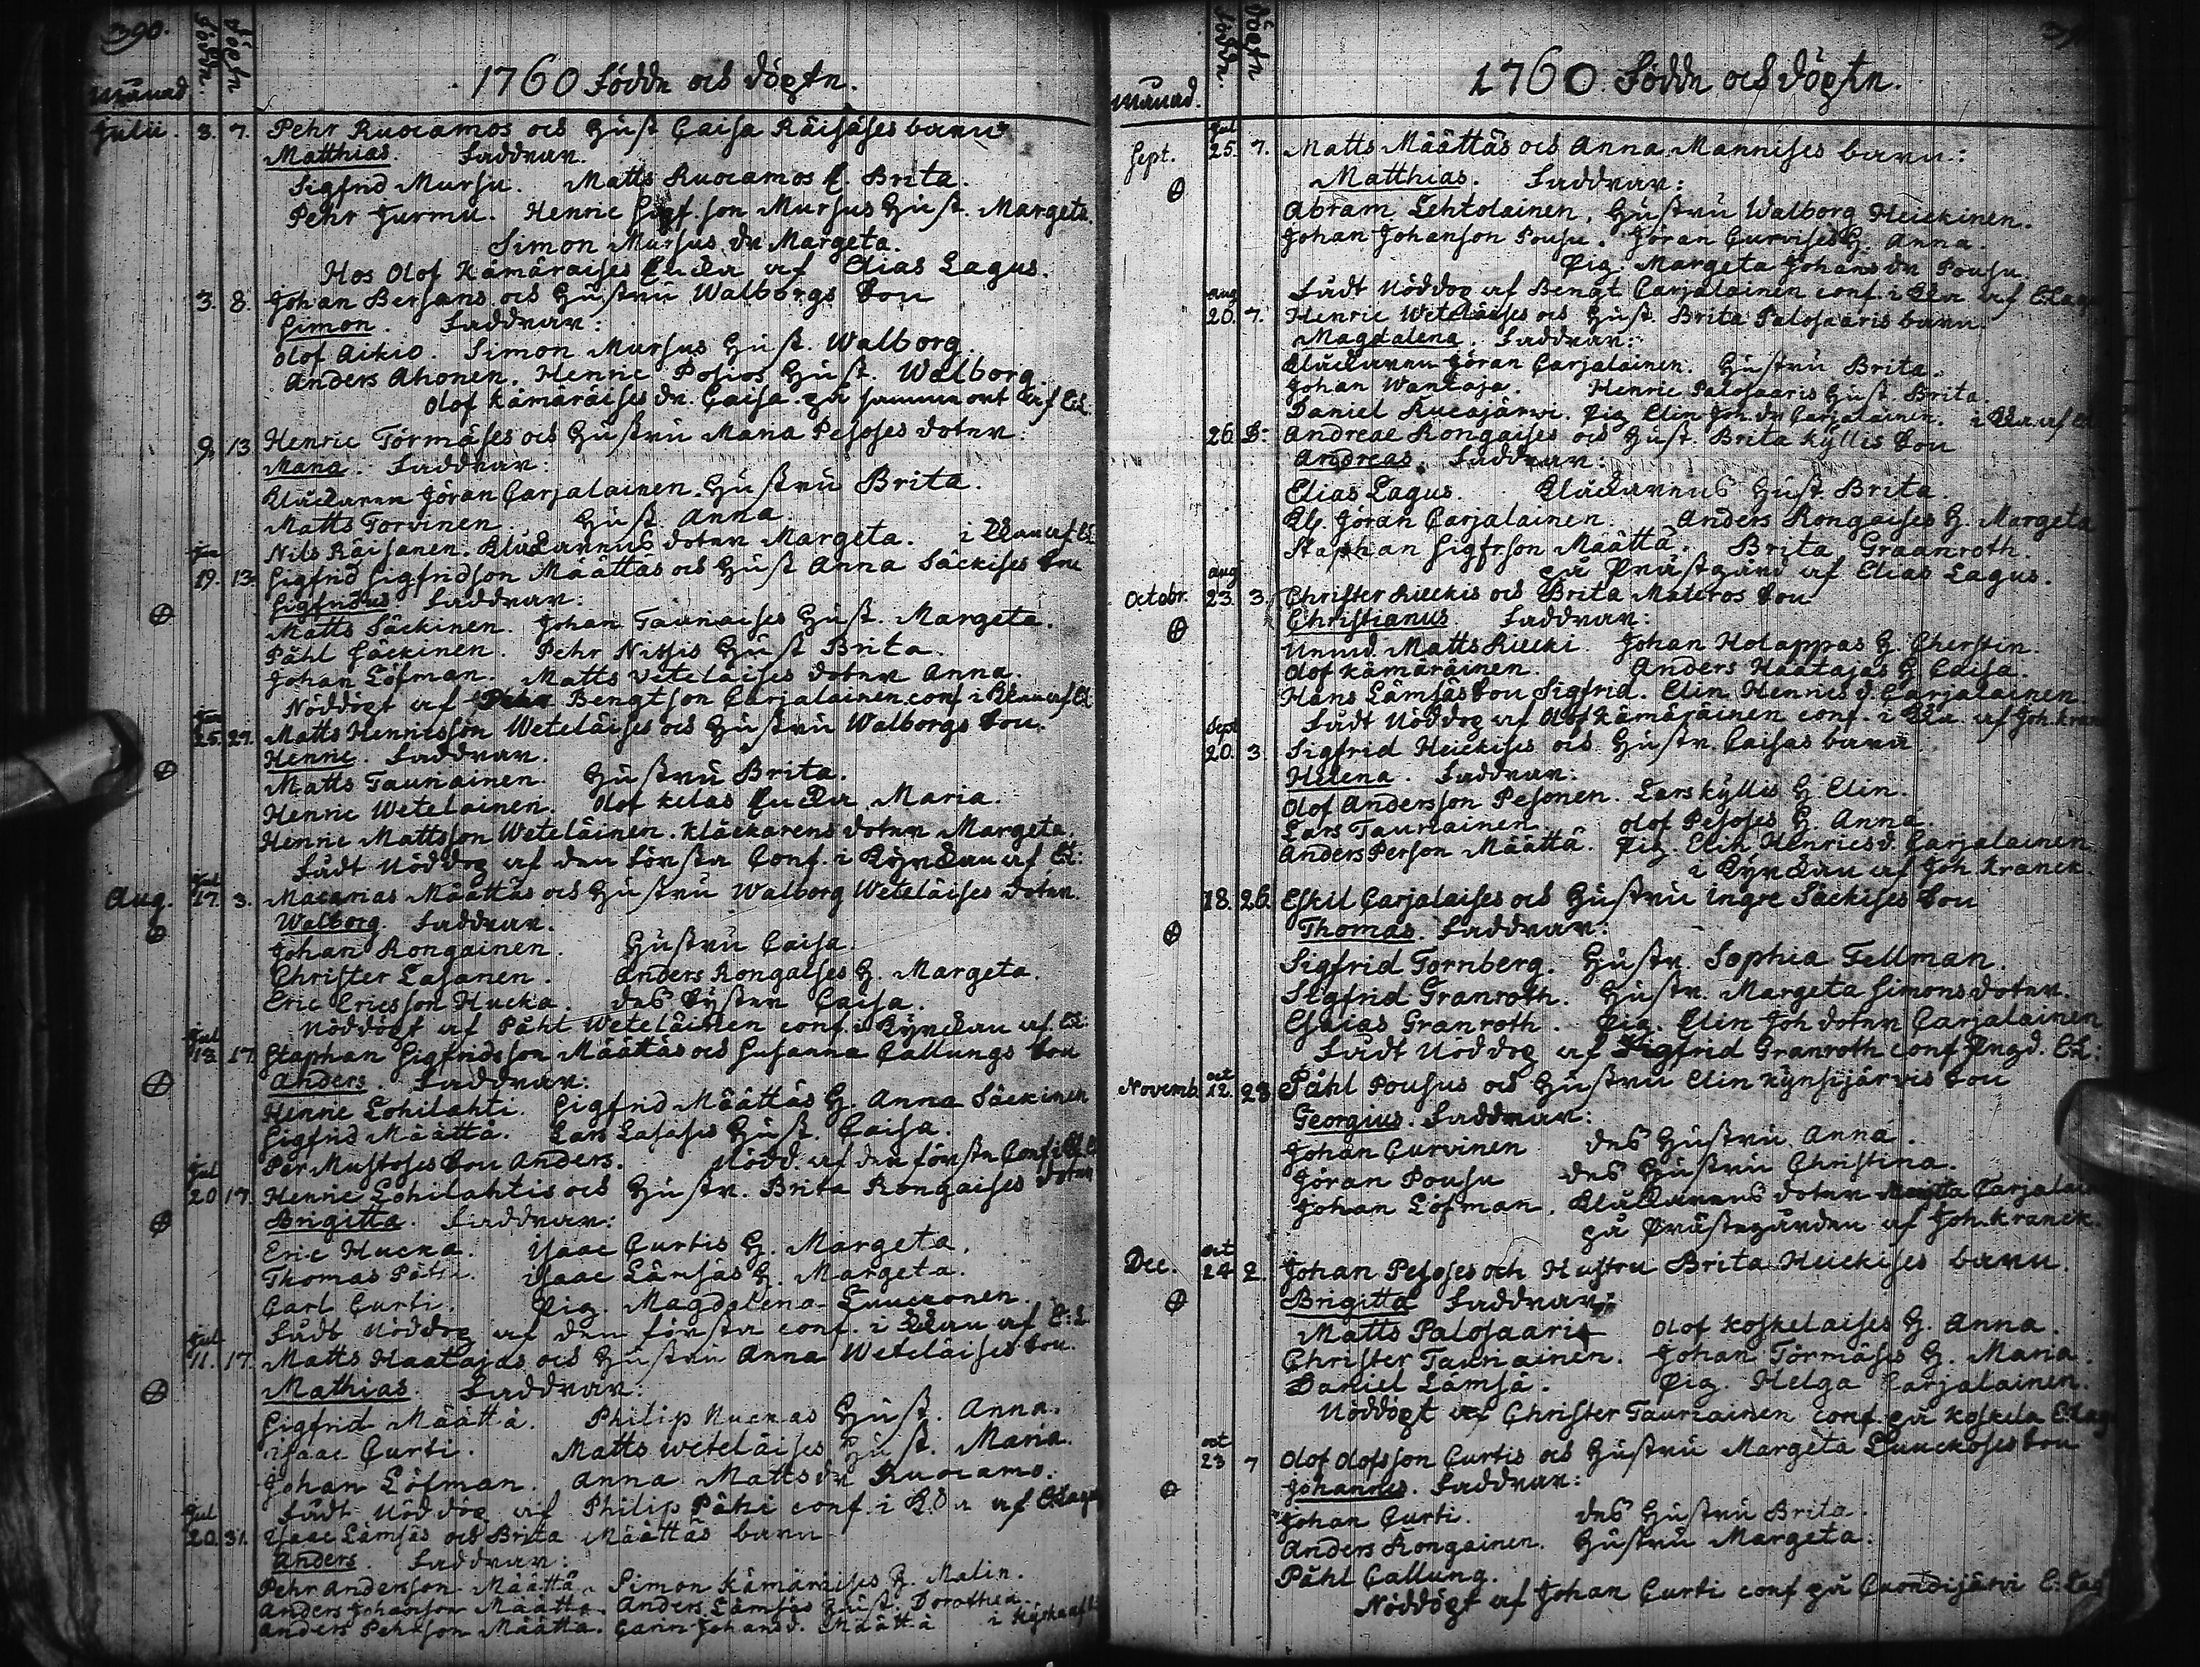 390.
Månad
Födde
Döpte
1760 Födde och döpte.
Julii. 3. 7. Pehr Ruocamos och Hust Caisa Räisäses barn
Matthias. Faddrar.
Sigfrid Mursu. Matts Ruocamos H. Brita.
Pehr Jurmu. Henric Sigf.son Mursus Hust. Margeta.
Simon Mursus dr Margeta.
Hos Olof Kämäräises af Elias Lagus.
3. 8. Johan Bersans och Hustru Walborgs Son
Simon. Faddrar:
Olof Aikio. Simon Mursus Hust. Walborg.
Anders Ahonen. Henric Posios Hust. Walborg.
Olof Kämäräises dr. Caisa. på samma ort af E.L.
9. 13. Henric Törmäses och Hustru Maria Pesoses doter:
Maria. Faddrar:
Klåckaren Jöran Carjalainen. Hustru Brita.
Matts Torvinen. Hust. Anna.
Nils Räisanen. Klåckarens doter Margeta. i Kkan af E.L
Jun
19. 13. Sigfrid Sigfridson Määttäs och Hust Anna Säckises Son
Sigfridus. Faddrar:
Matts Säckinen. Johan Tauriaises Hust. Margeta.
Påhl Säckinen. Pehr Nissis Hust Brita.
Johan Löfman. Matts Veteläises doter Anna.
Nöddöpt af Bengtson Carjalainen conf i Kkan af E.L
Jun
25. 27. Matts Henricsson Weteläises och Hustru Walborgs Son.
Henric. Faddrar.
Matts Tauriainen. Hustru Brita.
Henric Wetelainen. Olof Kelas Maria.
Henric Mattsson Weteläinen. Klåckarens doter Margeta.
Fådt Nöddop af den första Conf. i Kyrckan af E.L:
Jul
Aug. 17. 3. Macarias Määttäs och Hustru Walborg Weteläises doter.
Walborg. Faddrar.
Johan Rongainen. Hustru Caisa.
Christer Lasanen. Anders Rongaises H. Margeta.
Eric Ericsson Hucka. des Syster Caisa.
Nöddöpt af Påhl Weteläinen conf. i Kyrckan af E.L
Jul
13. 17. Staphan Sigfridsson Määttäs och Susanna Callungs Son
Anders. Faddrar:
Henric Lohilahti. Sigfrid Määttäs H. Anna Säckinen
Sigfrid Määttä. Lars Lasases Hust. Caisa.
Per Mustoses Son Anders. Nödd. af den förste Conf i Kk
Jul
20 17. Henric Lohilahtis och Hustr. Brita Rongaises doter
Brigitta. Faddrar:
Eric Hucka. Isaac Curtis H. Margeta.
Thomas Päti. Isaac Lämsäs H. Margeta.
Carl Curti. Pig. Magdalena Luuckonen.
Fådt Nöddop af den första conf. i Kkan af E:L
Jul
11. 17. Matts Haatajas och Hustru Anna Weteläises Son.
Mathias. Faddrar:
Sigfrid Määttä. Philip Huckas Hust. Anna.
Isaac Curti. Matts Weteläises Hust. Maria.
Johan Löfman. Anna Matts dr Ruocamo.
Fådt Nöddöp af Philip Päti conf. i af E.Lagus
Jul
20. 31. Isaac Lämsäs och Brita Määttäs barn
Anders. Faddrar:
Pehr Anderson Määttä. Simon Kämäräises H. Malin.
Anders Johanson Määttä. Anders Lämsäs Hust. Dorothea.
Anders Pehrson Määttä. Carin Johansd. Määttä i Kyrka af E.L
Månad.
Födde
Döpte
1760 Födde och döpte.
Jul
Sept. 25. 7. Matts Määttäs och Anna Mannises barn:
Matthias. Faddrar:
Abram Lehtolainen. Hustru Walborg Heickinen.
Johan Johanson Pousu. Jöran Curvises H. Anna.
Pig. Margeta Johans dr Pousu.
Fådt Nöddop af Bengt Carjalainen conf. i Kka af E.Lag
Aug
20. 7. Henric Weteläises och Hust. Brita Palosaaris barn.
Magdalena. Faddrar:
Klåckaren Jöran Carjalainen. Hustru Brita.
Johan Wantaja. Henric Palosaaris Hust. Brita.
Daniel Kucajärvi. Pig Elin Joh. dr Carjalainen. i Kka af E.L
26. 8. Andreae Rongaises och Hust. Brita Kyllis Son
Andreas. Faddrar:
Elias Lagus. Klåckarens Hust. Brita.
Kl. Jöran Carjalainen. Anders Rongaises H. Margeta
Staphan Sigfrson Määttä. Brita Graanroth.
på Prästgård af Elias Lagus.
Aug
Octobr. 23. 3. Christer Rieckis och Brita Materos Son
Christianus. Faddrar:
Matts Riecki. Johan Holappas H. Cherstin.
Olof Kämäräinen. Anders Haatajas H Caisa.
Hans Lämsäs Son Sigfrid. Elin Henrics d. Carjalainen.
Fådt Nöddop af Olof Kämäräinen conf. i Kka. af Joh. Kran
Sept
20. 3. Sigfrid Heickises och Hustr. Caisas barn
Helena. Faddrar:
Olof Andersson Pesonen. Lars Kyllis H Elin.
Lars Tauriainen. Olof Pesoses H. Anna.
Anders Person Määttä. Pig. Elin Henricsd. Carjalainen
i Kyrckan af Joh. Kranck.
18. 26. Eskil Carjalaises och Hustru Ingre Säckises Son
Thomas. Faddrar:
Sigfrid Tornberg. Hustr. Sophia Fellman.
Sigfrid Granroth. Hustr. Margeta Simons doter.
Esaias Granroth. Pig. Elin Joh doter Carjalainen
Fådt Nöddop af Sigfrid Granroth conf E.L:
oct
Novemb. 12. 28. Påhl Pousus och Hustru Elin Kynsijärvis Son
Georgius. Faddrar:
Johan Curvinen des Hustru Anna.
Jöran Pousu des Hustru Christina.
Johan Löfman. Klåckarens doter Margta Carjalain
på Prästegården af Joh. Kranck.
oct
Dec. 24 2. Johan Pesoses och Hustru Brita Heickises barn.
Brigitta Faddrar:
Matts Palosaari Olof Koskelaises H. Anna.
Christer Tauriainen. Johan Törmäses H. Maria.
Daniel Lämsä. Pig. Helga Carjalainen.
Nöddöpt af Christer Tauriainen conf. på Koskela E.Lag
oct
23 7 Olof Olofsson Curtis och Hustru Margeta Luuckoses Son
Johannes. Faddrar:
Johan Curti. des Hustru Brita.
Anders Rongainen. Hustru Margeta.
Påhl Callung.
Nöddöpt af Johan Curti conf på Cuondijärvi E:Lag